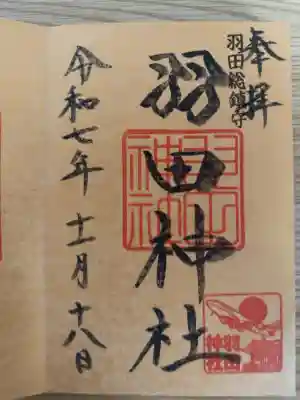 奉拝
羽田総鎮守
羽田神社
羽田神社
令和七年十一月十八日
羽田神社